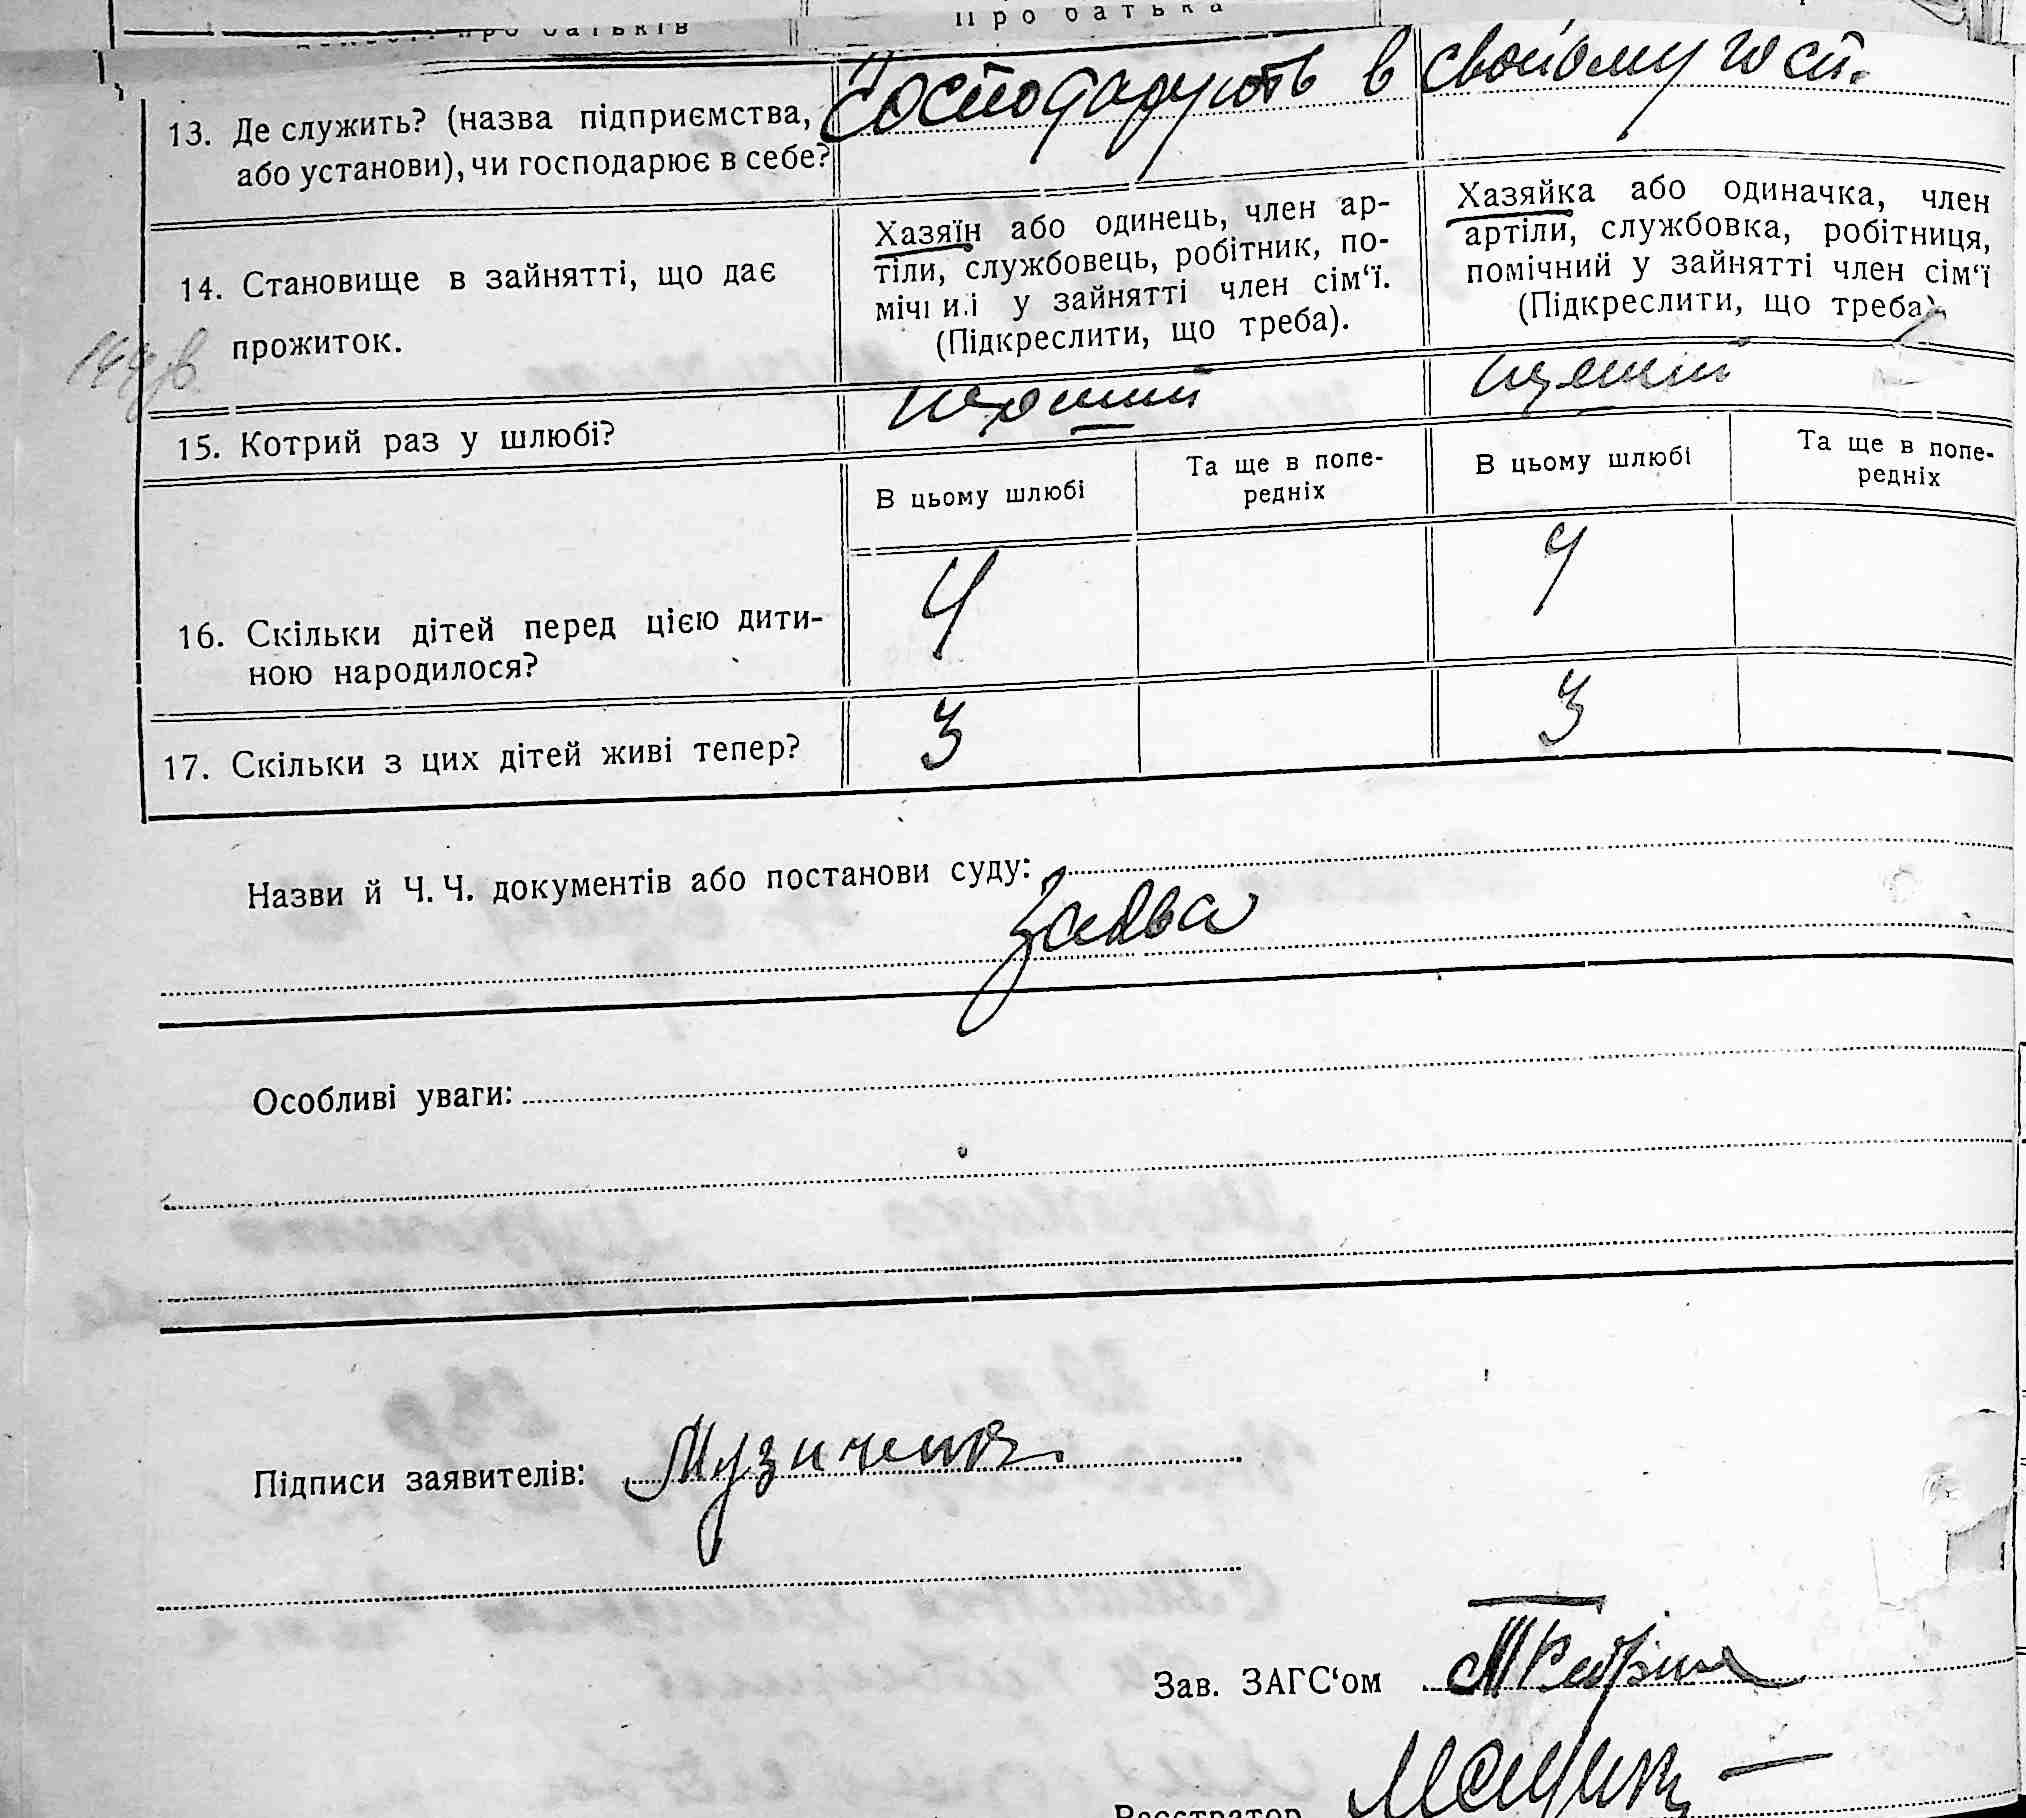 Про батька
про батьків
13. Де служить? (назва підприємства, або установи), чи господарює в себе?
Господарують в свойому госп.
14. Становище в зайнятті, що дає прожиток.
Хазяїн або одинець, член ар-
тіли, службовець, робітник, по-
мічний у зайнятті член сім‘ї.
(Підкреслити, що треба).
Хазяйка або одиначка, член
артіли, службовка, робітниця,
помічний у зайнятті член сім‘ї
(Підкреслити, що треба).
15. Котрий раз у шлюбі?
перший
перший
В цьому шлюбі
Та ще в попе-
редніх
В цьому шлюбі
Та ще в попе-
редніх
16. Скільки дітей перед цією дити-
ною народилося?
4
4
17. Скільки з цих дітей живі тепер?
3
3
Назви й Ч. Ч. документів або постанови суду:
Заява
Особливі уваги:
Підписи заявителів: Музиченко
Зав. ЗАГС‘ом
Реєстратор